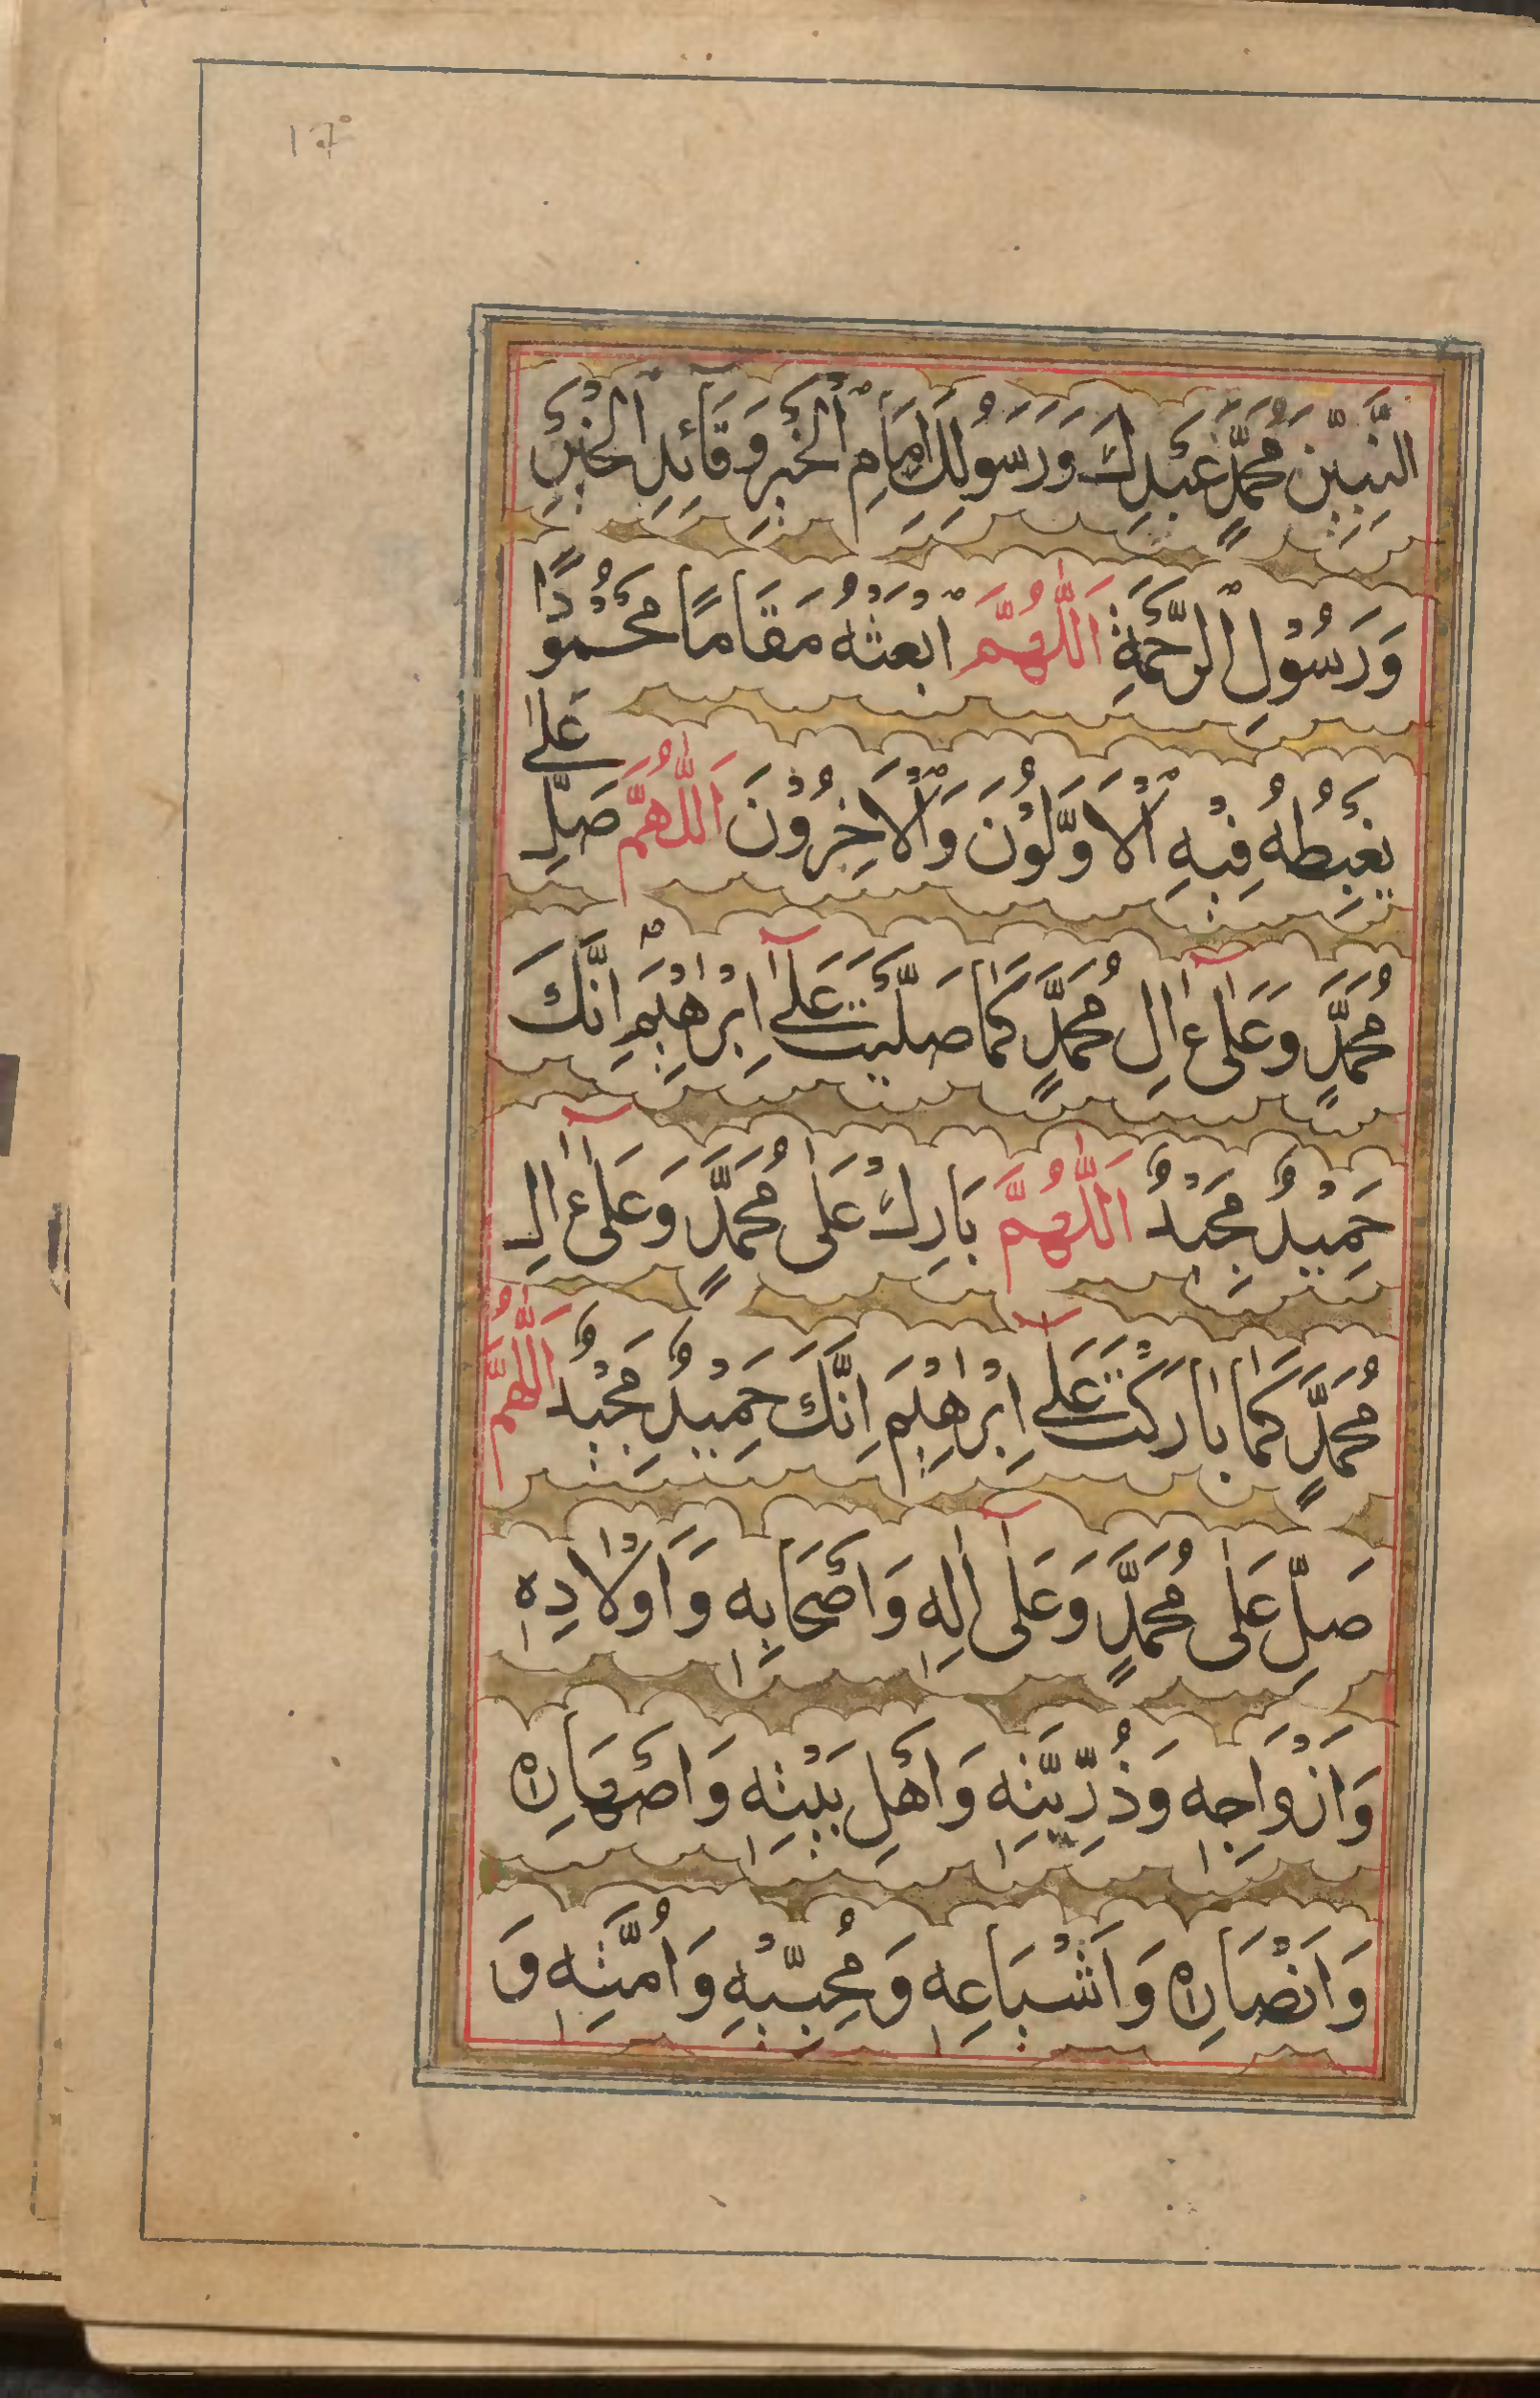 17
النَّبِيّٖنَ مُحَمَّدٍ عَبْدِكَ وَرَسُوْلِكَ اِمَامِ الْخَيْرِ وَقَآئِدِ الْخَيْرِ
وَرَسُوْلِ الرَّحْمَةِ اَللّٰهُمَّ ابْعَثْهُ مَقَامًا مَحْمُوْدًا
يَغْبِطُهُ فِيْهِ الْاَوَّلُوْنَ وَالْاٰخِرُوْنَ اَللّٰهُمَّ صَلِّ عَلٰى
مُحَمَّدٍ وَعَلٰٓى اٰلِ مُحَمَّدٍ كَمَا صَلَّيْتَ عَلٰٓى اِبْرٰهِيْمَ اِنَّكَ
حَمِيْدٌ مَجِيْدٌ اَللّٰهُمَّ بَارِكْ عَلٰى مُحَمَّدٍ وَعَلٰٓى اٰلِ
مُحَمَّدٍ كَمَا بَارَكْتَ عَلٰٓى اِبْرٰهِيْمَ اِنَّكَ حَمِيْدٌ مَجِيْدٌ اَللّٰهُمَّ
صَلِّ عَلٰى مُحَمَّدٍ وَعَلٰٓى اٰلِهٖ وَاَصْحَابِهٖ وَاَوْلَادِهٖ
وَاَزْوَاجِهٖ وَذُرِّيَّتِهٖ وَاَهْلِ بَيْتِهٖ وَاَصْهَارِهٖ
وَاَنْصَارِهٖ وَاَشْيَاعِهٖ وَمُحِبِّيْهِ وَاُمَّتِهٖ وَ